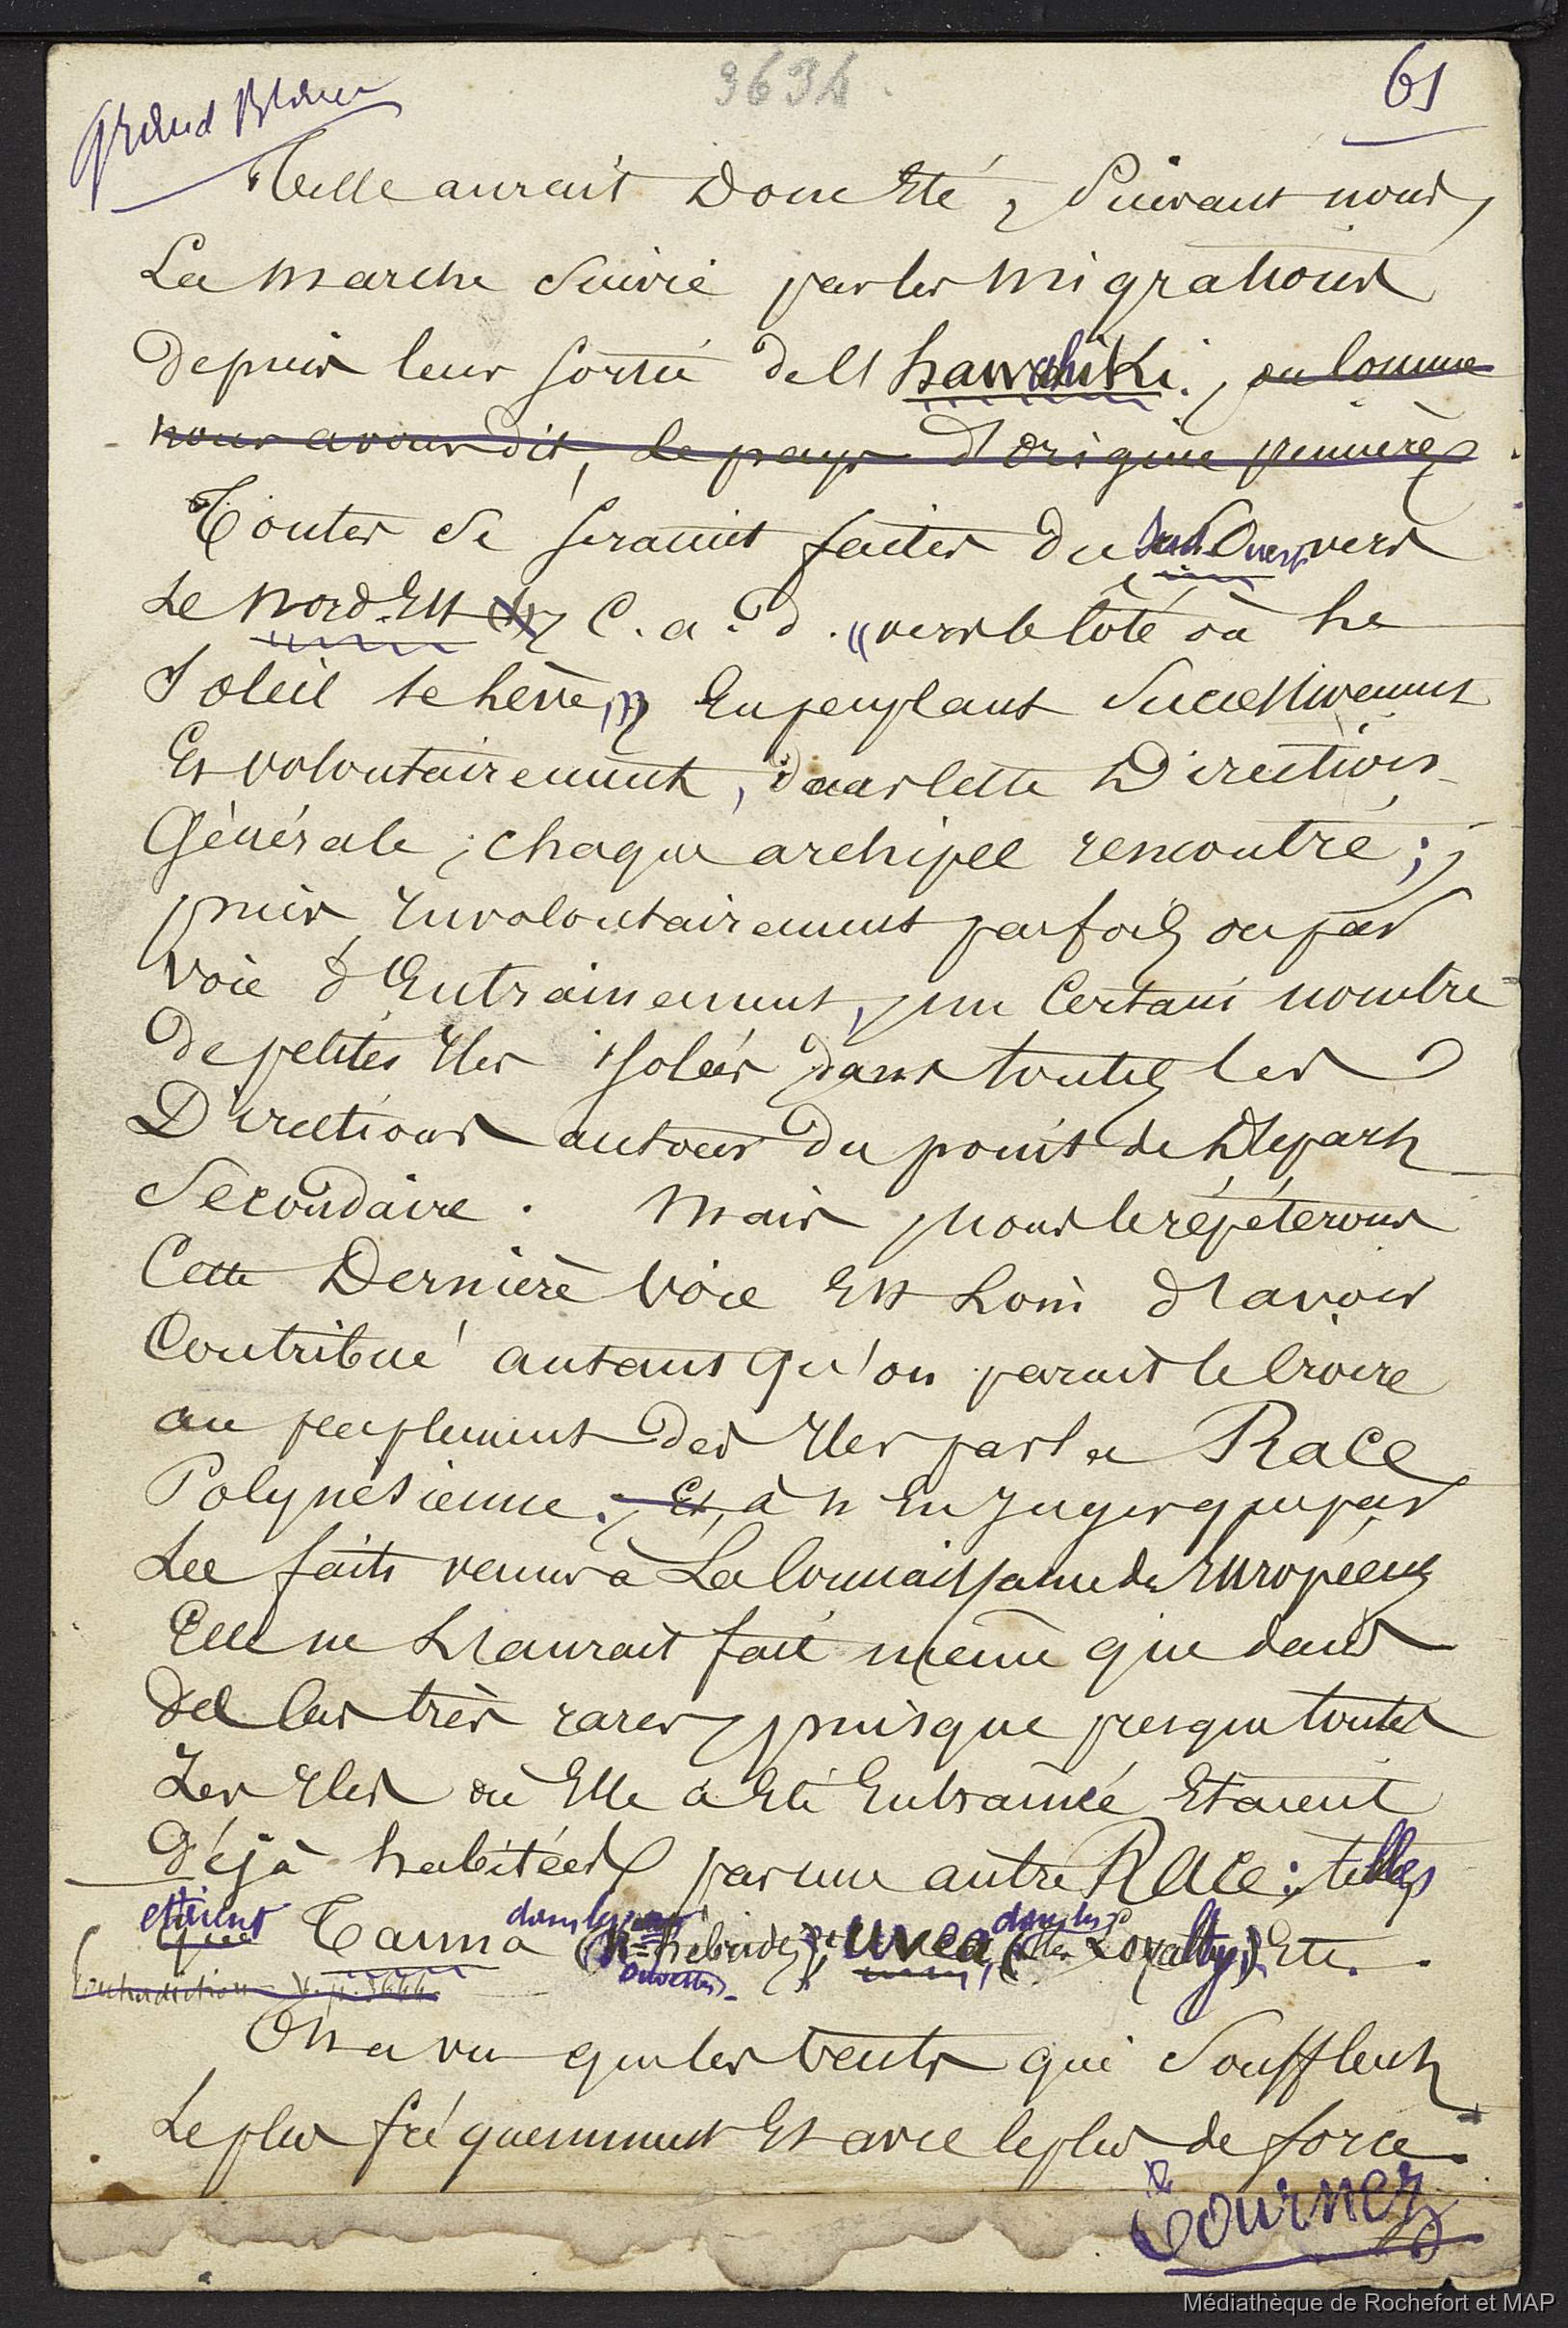 3634
61
Grand Blanc
Telle aurait donc été, suivant nous,
La marche suivie par les migrations
depuis leur sortie de l'hawahiki, ou comme
nous avons dit, le pays d'origine première
Toutes se seraient faites du Sud-Ouest vers
Le Nord-Est, C. a. d. "vers le côté où le
Soleil se lève," En peuplant successivement
Et volontairement, dans cette Direction
Générale, chaque archipel rencontré;
puis, involontairement parfois ou par
voie d'Entrainement, un certain nombre
de petites Iles isolées dans toutes les
Directions autour du point de Départ
Secondaire. Mais, nous le répéterons
Cette Dernière voie Est Loin d'avoir
Contribué autant qu'on parait le croire
au peuplement des Iles par la Race
Polynésienne. Et, à n'en juger que par
Les faits venus à La Connaissance des Européens
Elle ne L'aurait fait même que dans
des cas très rares, puisque presque toutes
Les Iles où Elle a été Entrainée Etaient
Déjà habitées par une autre Race: telles
étaient
que Tanna dans les (N=hebrides) et Uvea, dans les (Iles Loyalty) Etc.
Contradiction V. p. 3644
On a vu que les vents qui soufflent
Le plus fréquemment Et avec le plus de force
Tournez
Médiathèque de Rochefort et MAP